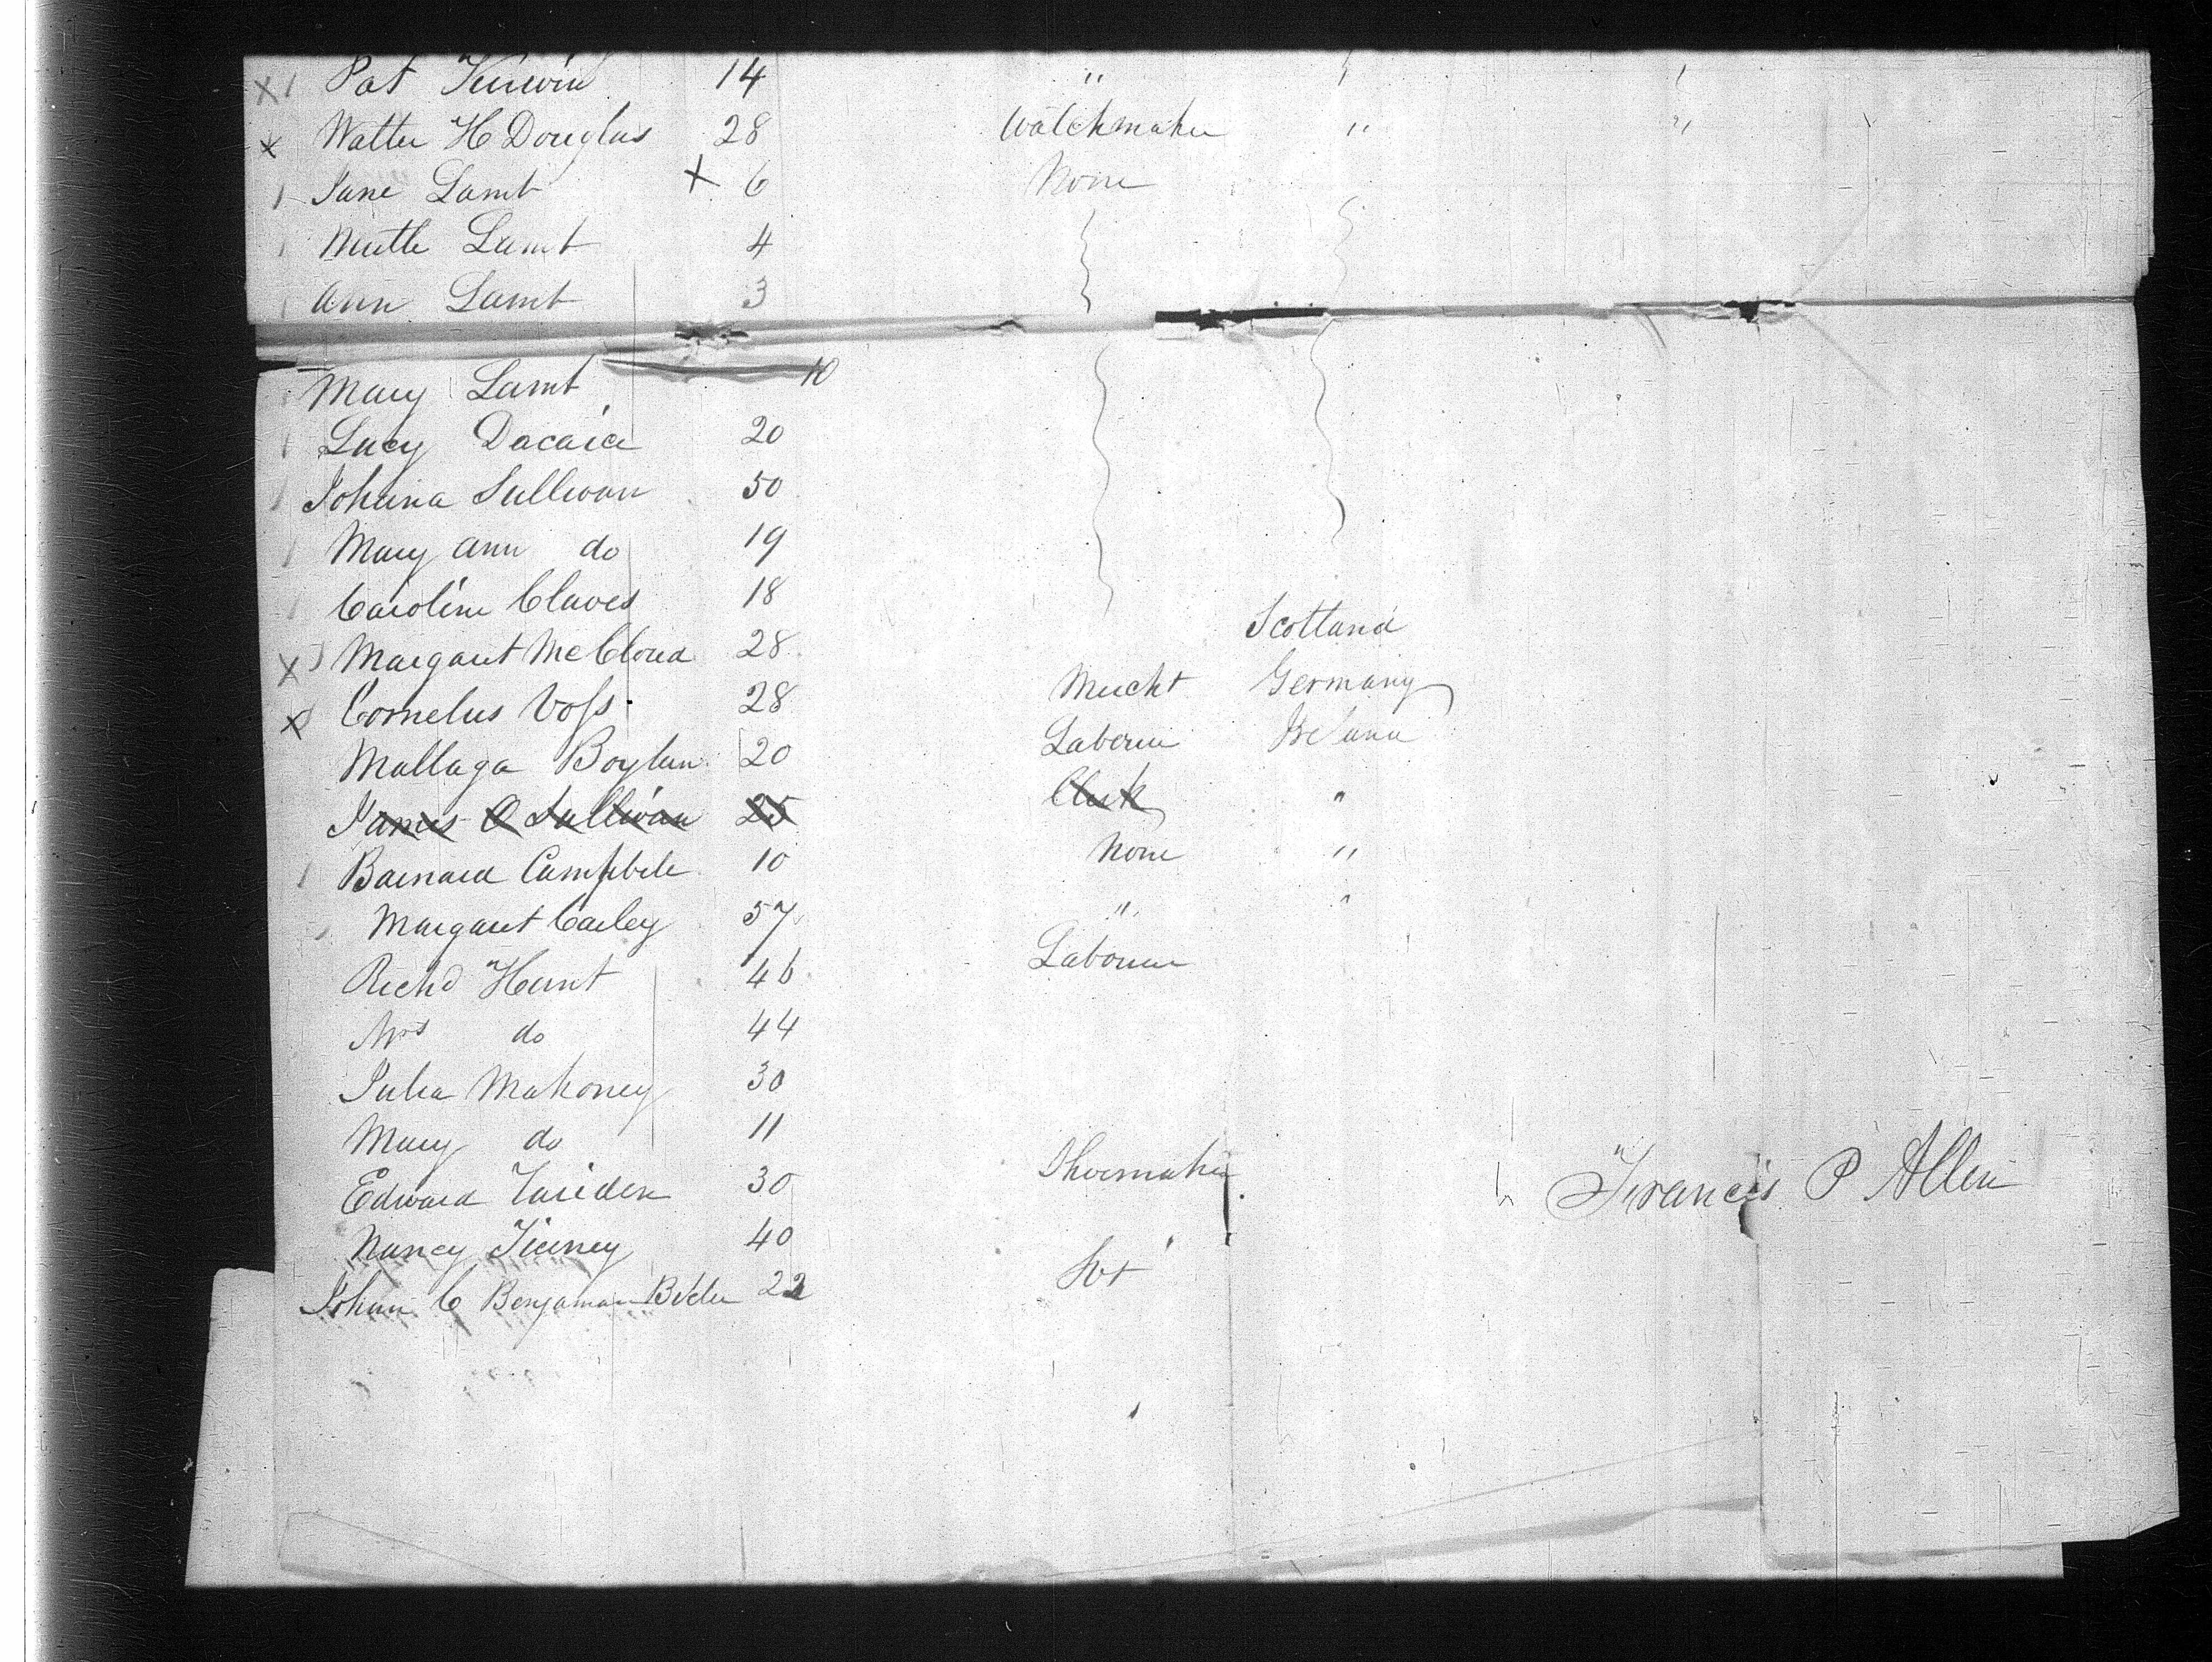 x 1 Pat Kirwin 14 " " "
x Walter H Douglas 28 Watchmaker " "
1 Jane Lamt x 6 None
1 Lamt 4
1 Ann Lamt 3
1 Mary Lamt 10
1 Lucy 20
1 Johana Sullivan 50
1 Mary Ann do 19
1 Caroline Claves 18
x Margaret McCloud 28 Scotland
x Cornelus Voss 28 Mercht Germany
Boylan 20 Laborer Ireland
James O Sullivan 25 Clerk "
1 Barnard Campbele 10 None "
Margaret Carley 57 " "
Richd Hunt 46 Laborer
Mrs do 44
Julia Mahoney 30
Mary do 11
Edward 30 Shoemaker Francis P Allen
Nancy Tierney 40
Johan C Benjaman 22